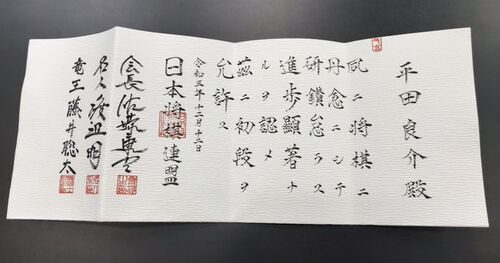 平田良介殿
夙ニ将棋ニ
丹念ニシテ
研鑽怠ラス
進歩顕著ナ
ルヲ認メ
茲ニ初段ヲ
允許ス
令和三年十二月十二日
日本将棋連盟
会長佐藤康光
名人渡辺明
竜王藤井聡太